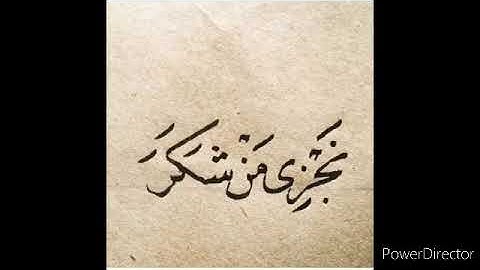 نَجْزِى مَنْ شَكَرَ
PowerDirector